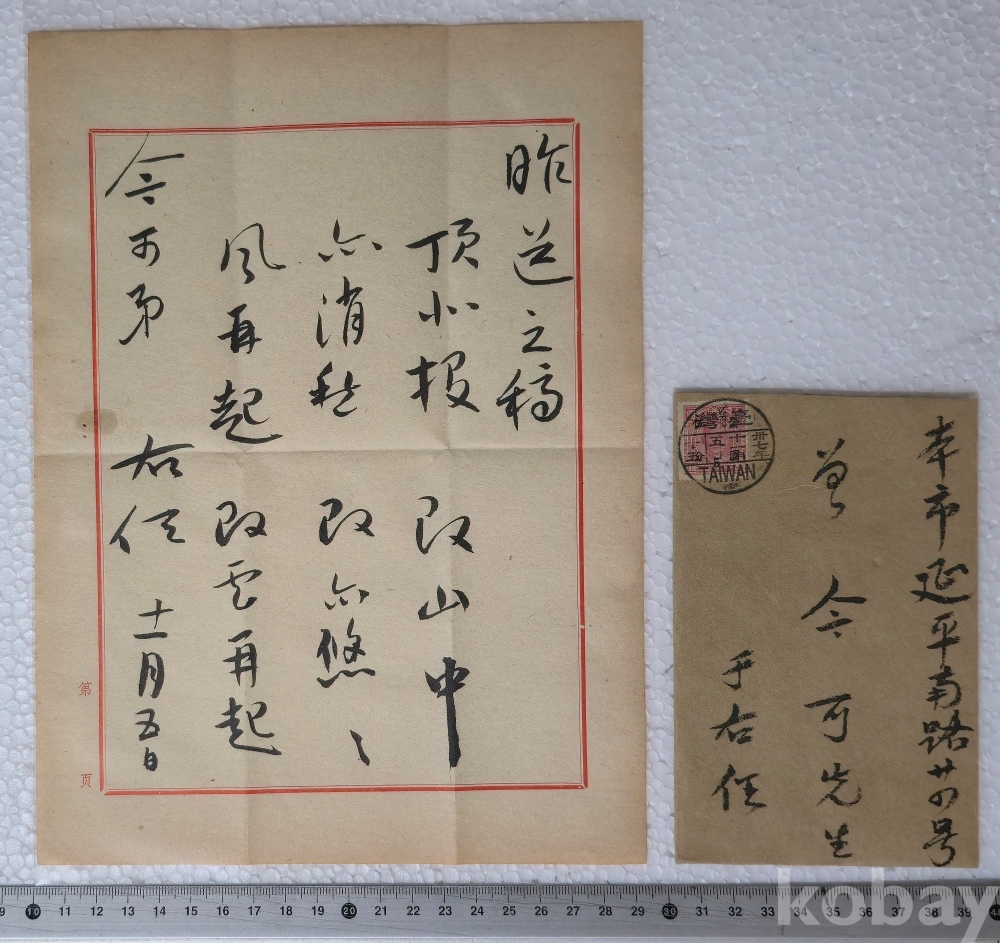 昨送之稿
顶北投 改山中
亦消愁 改亦悠〻
風再起 改云再起
今可弟 右任 十一月五日
第 页
本市延平南路廿四号
曾今可先生
于右任
臺灣
卅七年
TAIWAN
kobay
9 10 11 12 13 14 15 16 17 18 19 20 21 22 23 24 25 26 27 28 29 30 31 32 33 34 35 36 37 38 39